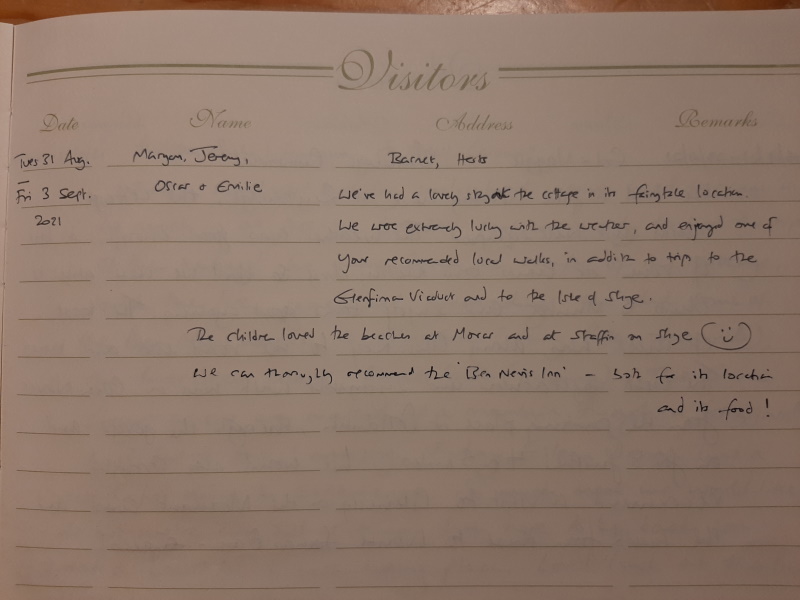 Visitors
Date Name Address Remarks
Tues 31 Aug. Maryam, Jeremy, Barnet, Herts
– Fri 3 Sept. Oscar + Emilie We've had a lovely stay at the cottage in its fairytale location.
2021 We were extremely lucky with the weather, and enjoyed one of
your recommended local walks, in addition to trips to the
Glenfinnan Viaduct and to the Isle of Skye.
The children loved the beaches at Morar and at Staffin on Skye
We can thoroughly recommend the 'Ben Nevis Inn' – both for its location
and its food!